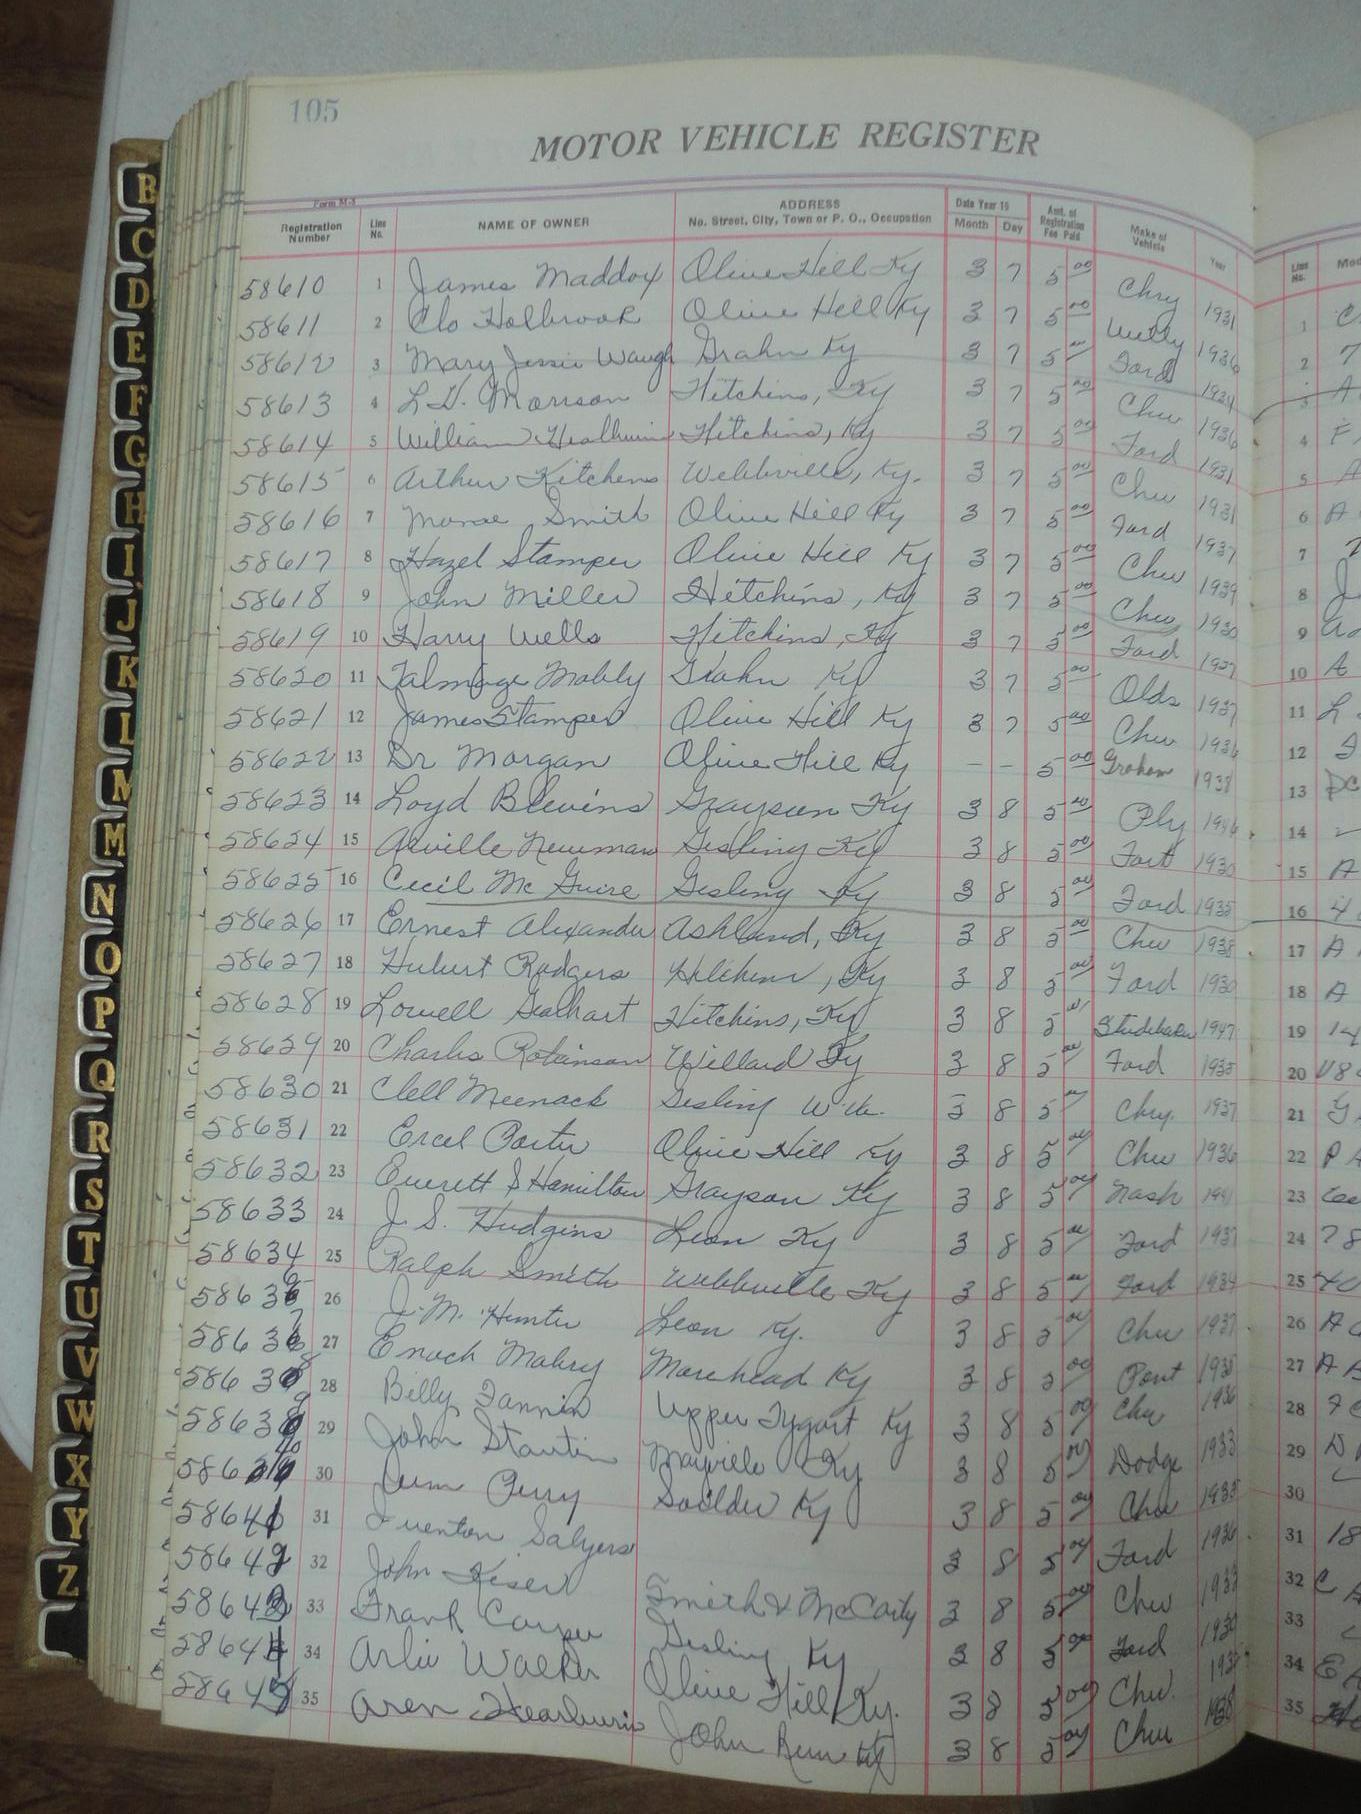 105
MOTOR VEHICLE REGISTER
Form M-3
Registration Number Line No. NAME OF OWNER ADDRESS No. Street, City, Town or P. O., Occupation Date Year 19 Month Day Amt. of Registration Fee Paid Make of Vehicle Year
58610 1 James Maddox Olive Hill Ky 3 7 5 00 Chry 1931
58611 2 Clo Holbrook Olive Hill Ky 3 7 5 00 Willy 1936
58612 3 Mary Jessie Waugh Grahn Ky 3 7 5 Ford 1934
58613 4 L.D. Morrison Hitchins, Ky 3 7 5 00 Chev 1936
58614 5 William Hitchins, Ky 3 7 5 00 Ford 1931
58615 6 Arthur Kitchens Webbville, Ky. 3 7 5 00 Chev 1931
58616 7 Monroe Smith Olive Hill Ky 3 7 5 00 Ford 1937
58617 8 Hazel Stamper Olive Hill Ky 3 7 5 00 Chev 1939
58618 9 John Miller Hitchins, Ky 3 7 5 00 Chev 1930
58619 10 Harry Wells Hitchins, Ky 3 7 5 00 Ford 1937
58620 11 Talmage Mobly Grahn Ky 3 7 5 00 Olds 1937
58621 12 James Stamper Olive Hill Ky 3 7 5 00 Chev 1936
58622 13 Dr Morgan Olive Hill Ky - - 5 00 Graham 1938
58623 14 Loyd Blevins Grayson Ky 3 8 5 00 Ply 1946
58624 15 Arville Newman Gesling Ky 3 8 5 00 Fort 1930
58625 16 Cecil Mc Guire Gesling Ky 3 8 5 00 Ford 1935
58626 17 Ernest Alexander Ashland, Ky 3 8 5 00 Chev 1938
58627 18 Hubert Rodgers Hitchins, Ky 3 8 5 00 Ford 1930
58628 19 Lowell Gealhart Hitchins, Ky 3 8 5 Studebaker 1947
58629 20 Charles Robinson Willard Ky 3 8 5 00 Ford 1935
58630 21 Clell Gesling 3 8 5 Chry. 1937
58631 22 Ercel Porter Olive Hill Ky 3 8 5 00 Chev 1936
58632 23 Everett S Hamilton Grayson Ky 3 8 5 00 Nash 1941
58633 24 J. S. Hudgins Leon Ky 3 8 5 00 Ford 1937
58634 25 Ralph Smith Webbville Ky 3 8 5 00 Ford 1934
58635 26 J. M. Hunter Leon Ky. 3 8 5 00 Chev 1937
5863 27 Enoch Mabry Morehead Ky 3 8 5 00 Pont 1935
58638 28 Billy Fannin Upper Tygart Ky 3 8 5 00 Chev 1936
58639 29 John Stautin Ky 3 8 5 00 Dodge 1933
58640 30 Jim Perry Soulder Ky 3 8 5 00 Chev 1935
58641 31 Quenton Salyers 3 8 5 00 Ford 1936
58642 32 John Kiser Smith & McCarty 3 8 5 00 Chev 1933
58643 33 Frank Cooper Gesling Ky 3 8 5 00 Ford 1930
58644 34 Arlie Walker Olive Hill Ky. 3 8 5 00 Chev.
58645 35 Aren John Run Ky 3 8 5 00 Chev 1938
B
C
D
E
F
G
H
I
J
K
L
M
M
N
O
P
Q
R
S
T
U
V
W
X
Y
Z
Line No.
1
2
3
4
5
6
7
8
9
10
11
12
13
14
15
16
17
18
19
20
21
22
23
24
25
26
27
28
29
30
31
32
33
34
35